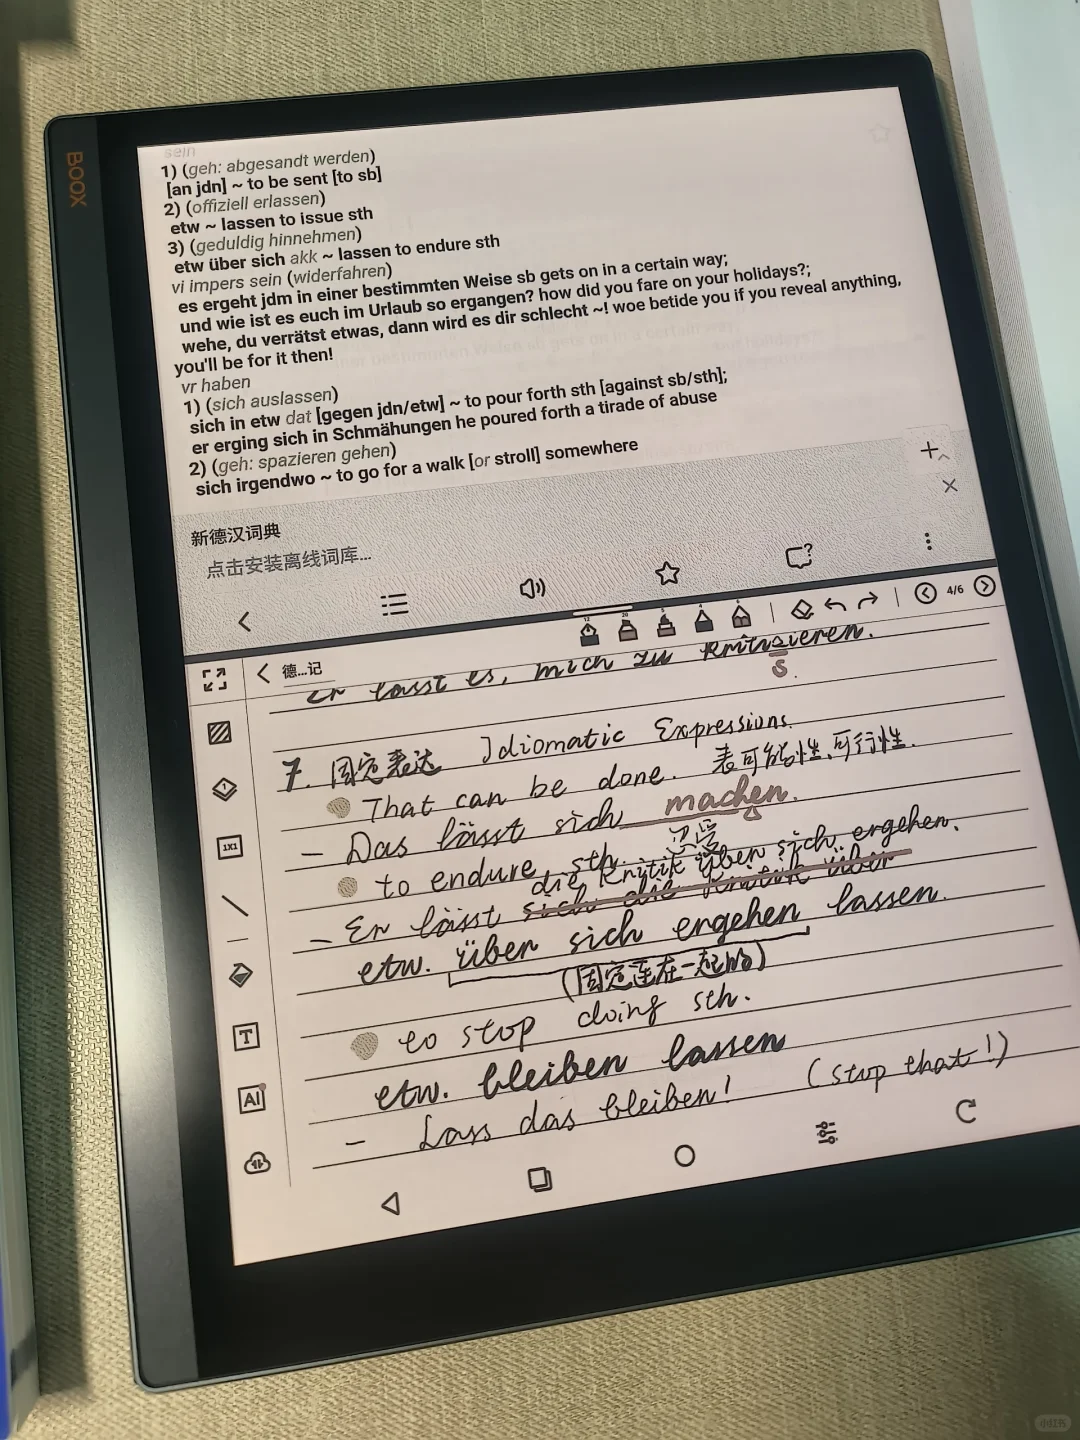 BOOX
sein
1) (geh: abgesandt werden)
[an jdn] ~ to be sent [to sb]
2) (offiziell erlassen)
etw ~ lassen to issue sth
3) (geduldig hinnehmen)
etw über sich akk ~ lassen to endure sth
vi impers sein (widerfahren)
es ergeht jdm in einer bestimmten Weise sb gets on in a certain way;
und wie ist es euch im Urlaub so ergangen? how did you fare on your holidays?;
wehe, du verrätst etwas, dann wird es dir schlecht ~! woe betide you if you reveal anything,
you'll be for it then!
vr haben
1) (sich auslassen)
sich in etw dat [gegen jdn/etw] ~ to pour forth sth [against sb/sth];
er erging sich in Schmähungen he poured forth a tirade of abuse
2) (geh: spazieren gehen)
sich irgendwo ~ to go for a walk [or stroll] somewhere
新德汉词典
点击安装离线词库...
4/6
德...记
Er lässt es, mich zu kritisieren.
s
7. 固定表达 Idiomatic Expressions.
That can be done. 表可能性、可行性.
- Das lässt sich machen.
to endure sth. 忍受
die Kritik über sich ergehen.
- Er lässt sich die Kritik über
etw. über sich ergehen lassen.
(固定连在一起的)
to stop doing sth.
etw. bleiben lassen
- Lass das bleiben! (stop that!)
1X1
T
AI
小红书